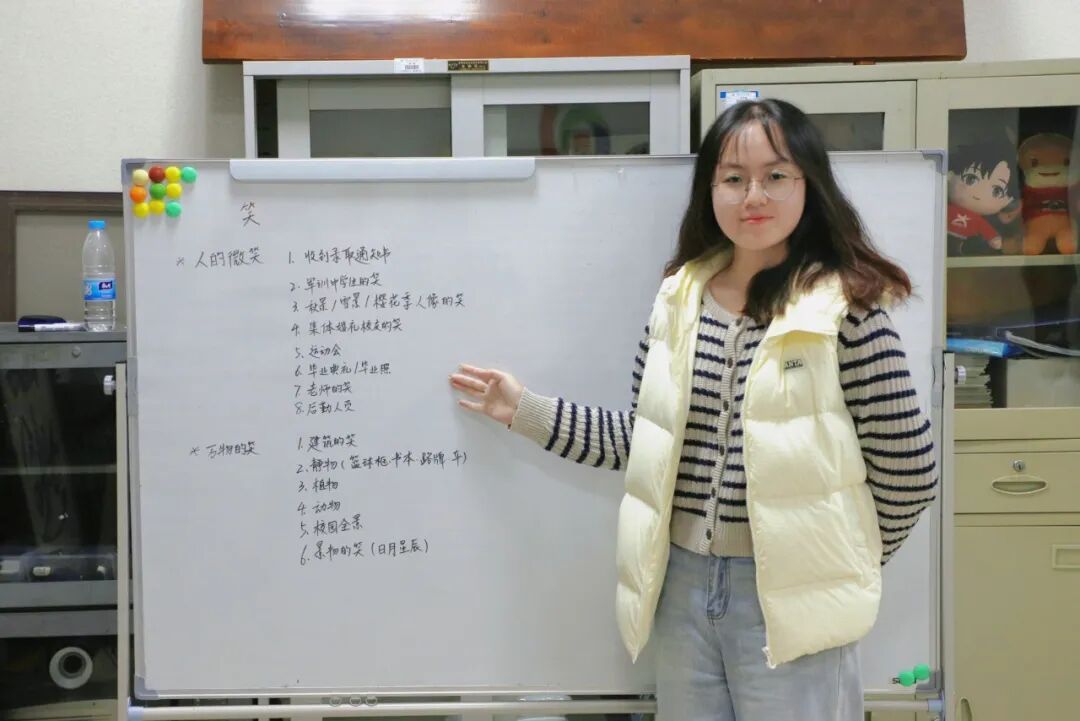 笑
* 人的微笑 1. 收到录取通知书
2. 军训中学生的笑
3. 秋景/雪景/樱花季人像的笑
4. 集体婚礼校友的笑
5. 运动会
6. 毕业典礼/毕业照
7. 老师的笑
8. 后勤人员
* 万物的笑 1. 建筑的笑
2. 静物(篮球框·书本·路牌 等)
3. 植物
4. 动物
5. 校园全景
6. 景物的笑(日月星辰)
ANTA